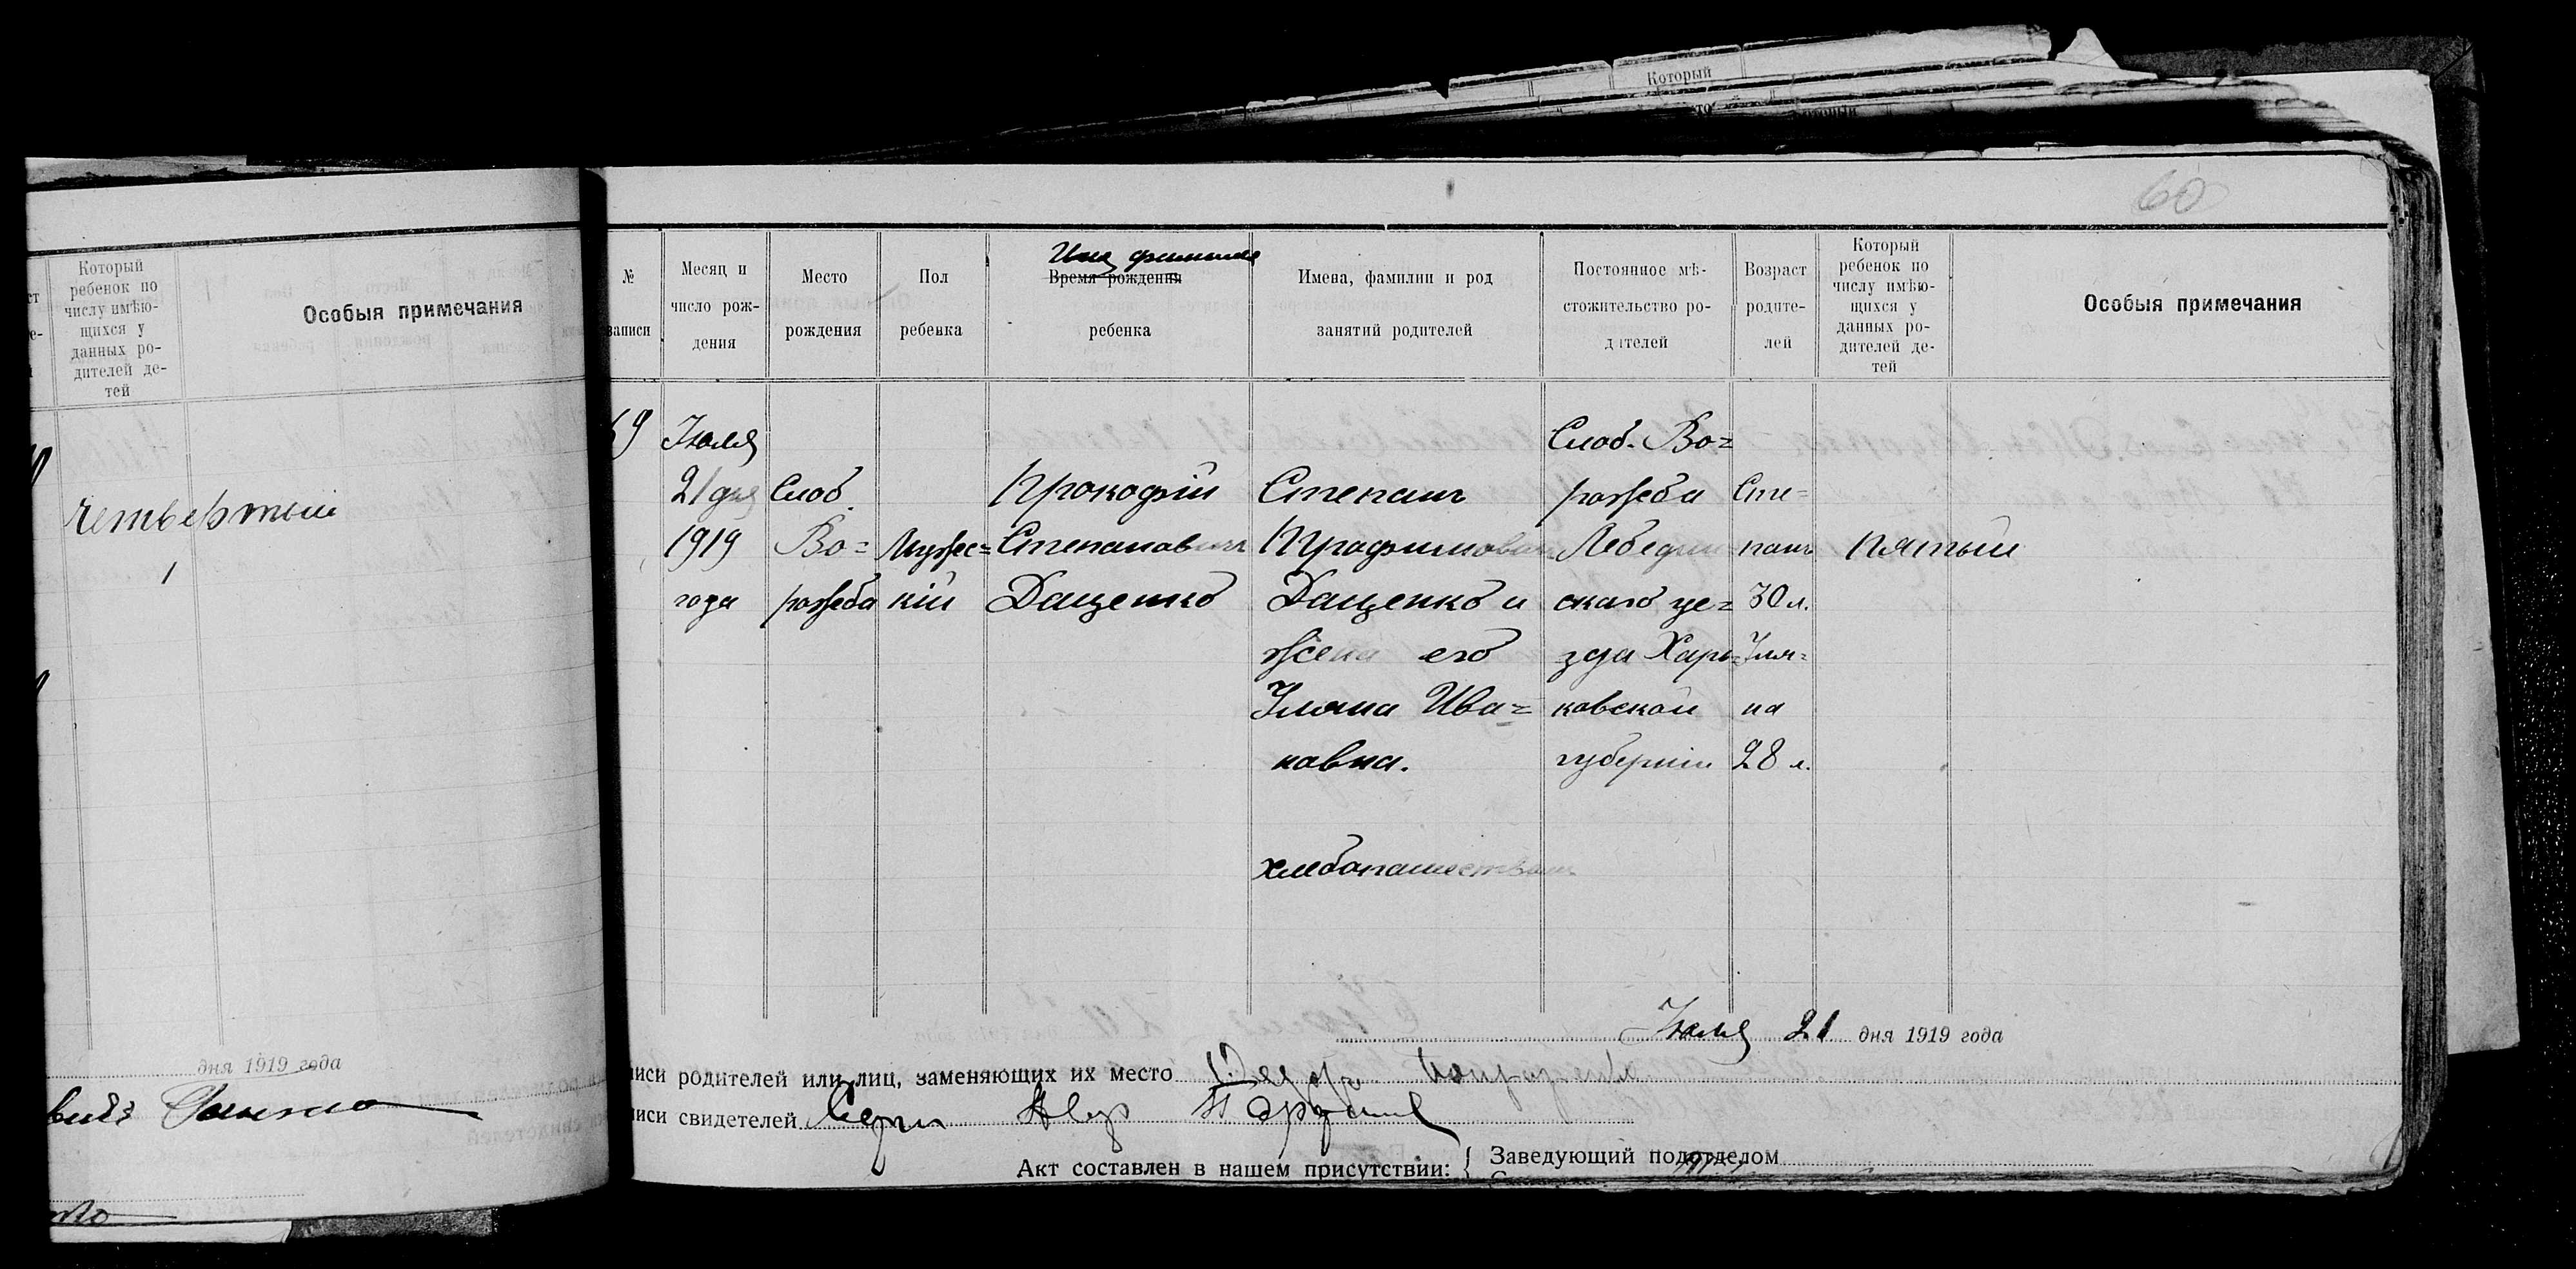 Который
60
Который
ребенок по
числу имѣю-
щихся у
данных ро-
дителей де-
тей
Особыя примечания
четвертый
дня 1919 года
№
записи
Месяц и
число рож-
дения
Место
рождения
Пол
ребенка
Имя фамилия
Время рождения
ребенка
Имена, фамилии и род
занятий родителей
Постоянное мѣ-
стожительство ро-
дителей
Возраст
родите-
лей
Который
ребенок по
числу имѣю-
щихся у
данных ро-
дителей де-
тей
Особыя примечания
69
Июля
21 дня
1919
года
Слоб.
Во=
рожба
Мужес=
кій
Прокофій
Степанович
Даценко
Степанъ
Даценко и
жена его
Уляна Ива=
новна.
Слоб. Во=
рожба
Лебедин
скаго уе=
зда Харь=
ковской
губерніи
Сте=
панъ
30 л.
Уля=
на
28 л.
пятый
Июля 21 дня 1919 года
писи родителей или лиц, заменяющих их место
писи свидетелей
Акт составлен в нашем присутствии: { Заведующий подотделом